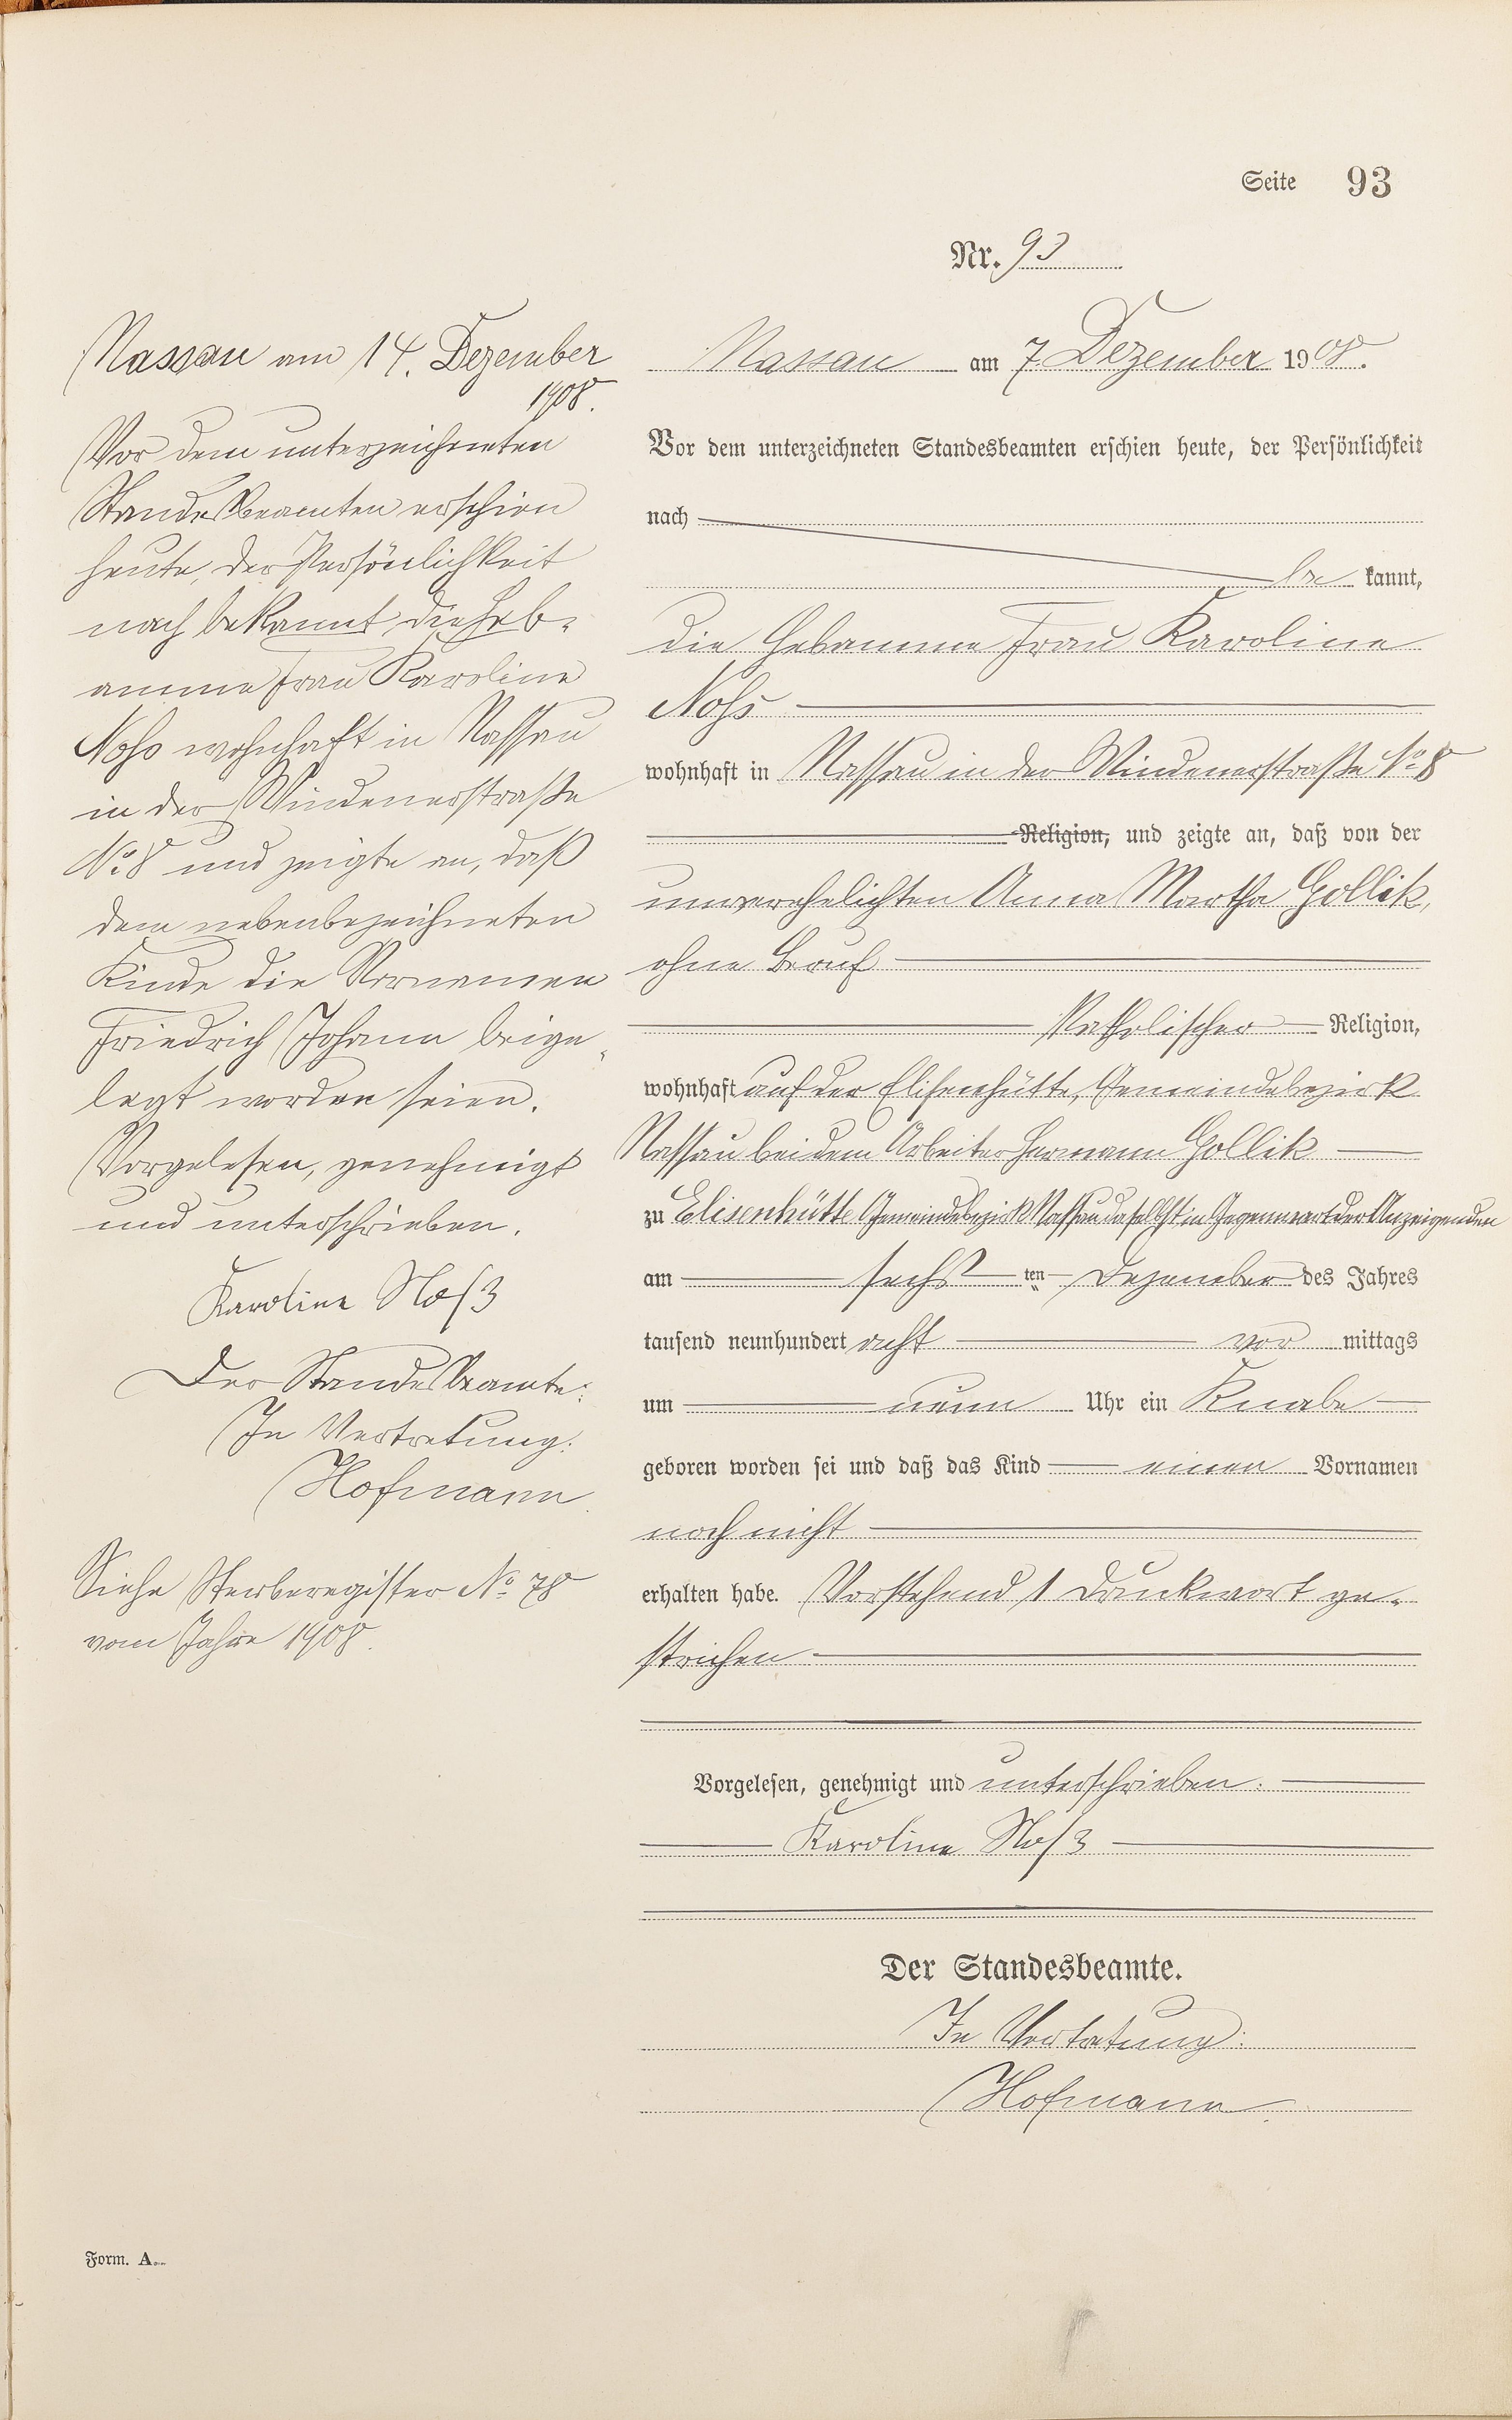 Seite 93
Nr. 93
Nassau am 7. Dezember 1908.
Vor dem unterzeichneten Standesbeamten erschien heute, der Persönlichkeit
nach
be kannt,
die Hebamme Frau Karoline
Nohs
wohnhaft in Nassau in der Windenerstraße No 8
Religion, und zeigte an, daß von der
unverehelichten Anna Martha Gollik,
ohne Beruf
katholischer Religion,
wohnhaft auf der Elisenhütte, Gemeindebezirk
Nassau bei dem Arbeiter Hermann Gollik
zu Elisenhütte Gemeindebezirk Nassau daselbst in Gegenwart der Anzeigenden
am sechsten Dezember des Jahres
tausend neunhundert acht vor mittags
um neun Uhr ein Knabe
geboren worden sei und daß das Kind einen Vornamen
noch nicht
erhalten habe. Vorstehend 1 Druckwort ge-
strichen
Vorgelesen, genehmigt und unterschrieben.
Karoline Nohs
Der Standesbeamte.
In Vertretung:
Hofmann.
Nassau am 14. Dezember
1908.
Vor dem unterzeichneten
Standesbeamten erschien
heute, der Persönlichkeit
nach bekannt die Heb-
amme Frau Karoline
Nohs wohnhaft in Nassau
in der Windenerstraße
No 8 und zeigte an, daß
dem nebenbezeichneten
Kinde die Vornamen
Friedrich Johann beige-
legt worden seien.
Vorgelesen, genehmigt
und unterschrieben.
Karoline Nohs
Der Standesbeamte:
In Vertretung:
Hofmann.
Siehe Sterberegister No 78
vom Jahre 1908.
Form. A.